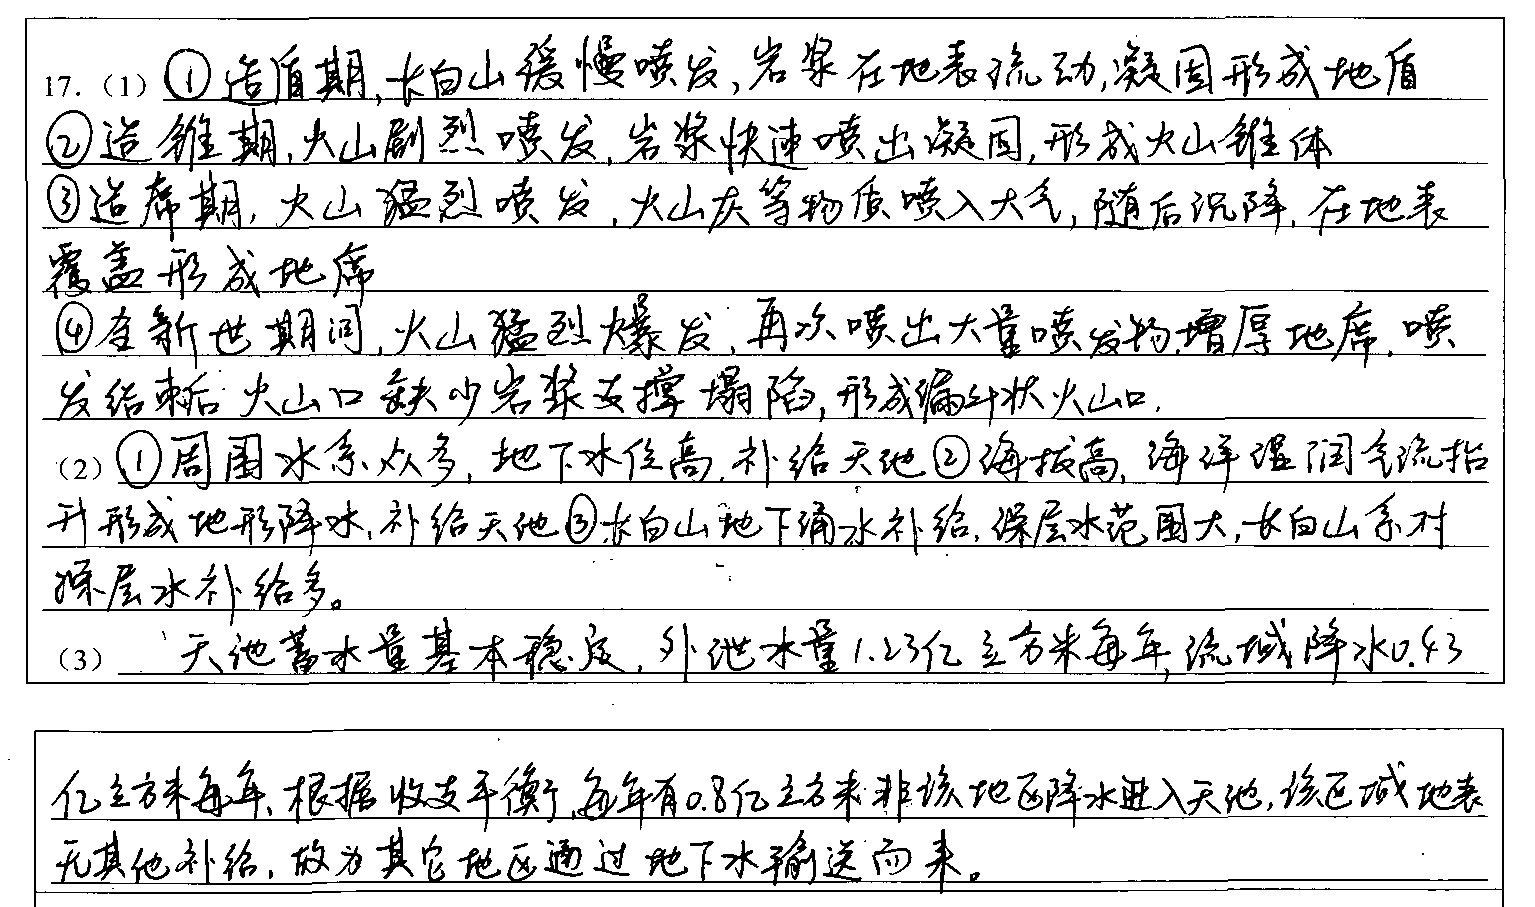 17.（1）①造盾期,长白山缓慢喷发,岩浆在地表流动,凝固形成地盾
②造锥期,火山剧烈喷发,岩浆快速喷出凝固,形成火山锥体
③造席期,火山猛烈喷发,火山灰等物质喷入大气,随后沉降,在地表
覆盖形成地席
④全新世期间,火山猛烈爆发,再次喷出大量喷发物,增厚地席,喷
发结束后火山口缺少岩浆支撑塌陷,形成漏斗状火山口.
（2）①周围水系众多,地下水位高,补给天池②海拔高,海洋湿润气流抬
升形成地形降水,补给天池③长白山地下涌水补给,深层水范围大,长白山系对
深层水补给多。
（3）天池蓄水量基本稳定,外泄水量1.23亿立方米每年,流域降水0.43
亿立方米每年,根据收支平衡,每年有0.8亿立方米非该地区降水进入天池,该区域地表
无其他补给,故为其它地区通过地下水输送而来。